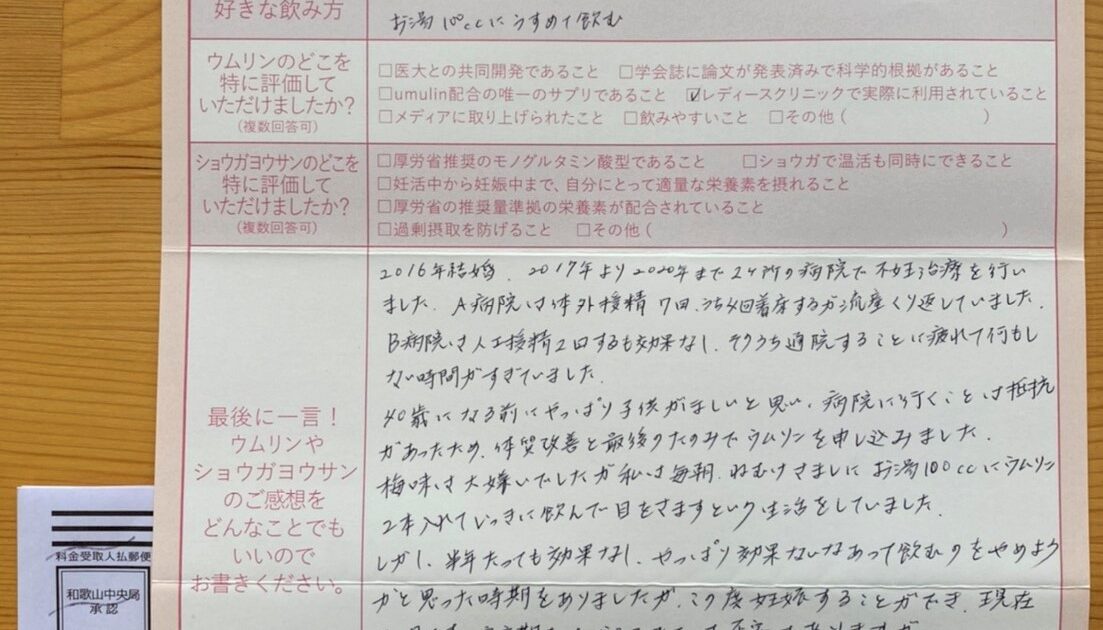 好きな飲み方
お湯100ccにうすめて飲む
ウムリンのどこを
特に評価して
いただけましたか?
(複数回答可)
□医大との共同開発であること □学会誌に論文が発表済みで科学的根拠があること
□umulin配合の唯一のサプリであること ☑レディースクリニックで実際に利用されていること
□メディアに取り上げられたこと □飲みやすいこと □その他( )
ショウガヨウサンのどこを
特に評価して
いただけましたか?
(複数回答可)
□厚労省推奨のモノグルタミン酸型であること □ショウガで温活も同時にできること
□妊活中から妊娠中まで、自分にとって適量な栄養素を摂れること
□厚労省の推奨量準拠の栄養素が配合されていること
□過剰摂取を防げること □その他( )
最後に一言!
ウムリンや
ショウガヨウサン
のご感想を
どんなことでも
いいので
お書きください。
2016年結婚、2017年より2020年まで2ヶ所の病院で不妊治療を行い
ました。A病院は体外接精7回、うち4回着床するが流産くり返していました。
B病院は人工接精2回するも効果なし、そのうち通院することに疲れて何もし
ない時間がすぎていました。
40歳になる前にやっぱり子供がほしいと思い、病院に行くことは抵抗
があったため、体質改善と最後のたのみでウムリンを申し込みました。
梅味は大嫌いでしたが私は毎朝、ねむけさましにお湯100ccにウムリン
2本入れていっきに飲んで目をさますという生活をしていました。
しかし、半年たっても効果なし、やっぱり効果ないなあって飲むのをやめよう
かと思った時期もありましたが、この度妊娠することができ、現在
料金受取人払郵便
和歌山中央局
承認